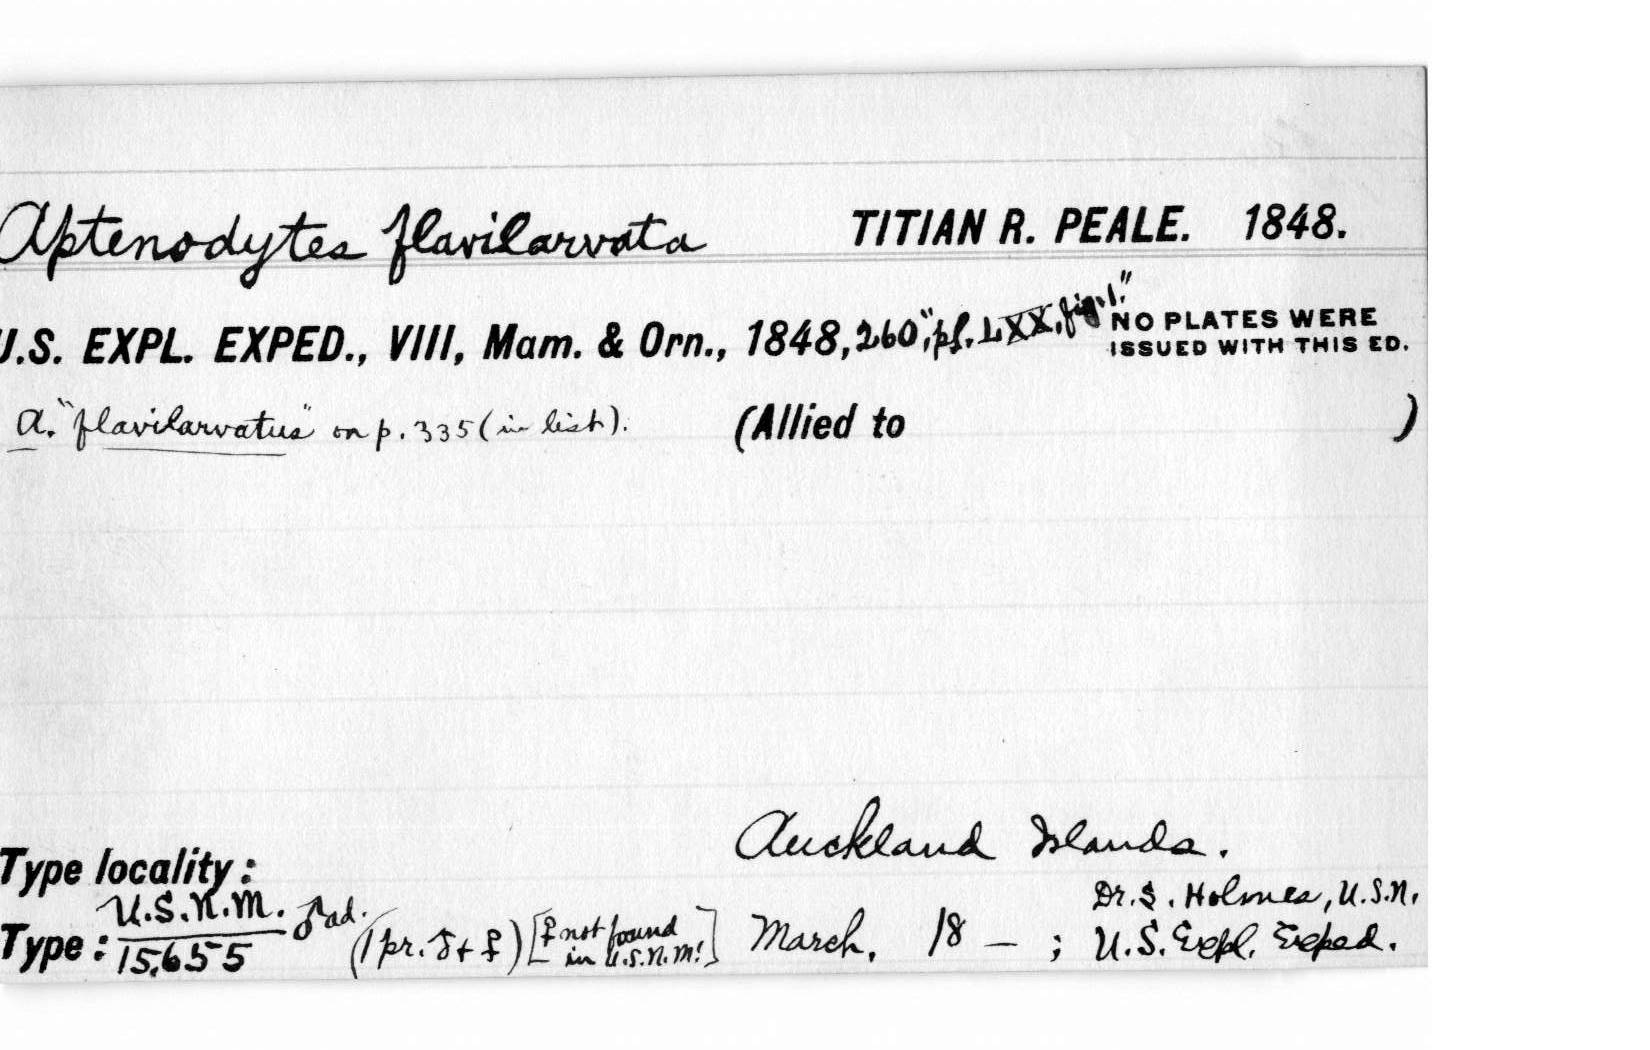 Aptenodytes flavilarvata TITIAN R. PEALE. 1848.
U.S. EXPL. EXPED., VIII, Mam. & Orn., 1848, 260, "pl. LXX, fig. 1." NO PLATES WERE
ISSUED WITH THIS ED.
A. "flavilarvatus" on p. 335 (in list). (Allied to )
Auckland Islands.
Type locality:
Dr. S. Holmes, U.S.N.
Type: U.S.N.M. 15,655 ♂ ad. (1 pr. ♂ + ♀) [♀ not found in U.S.N.M.!] March, 18 – ; U.S. Expl. Exped.